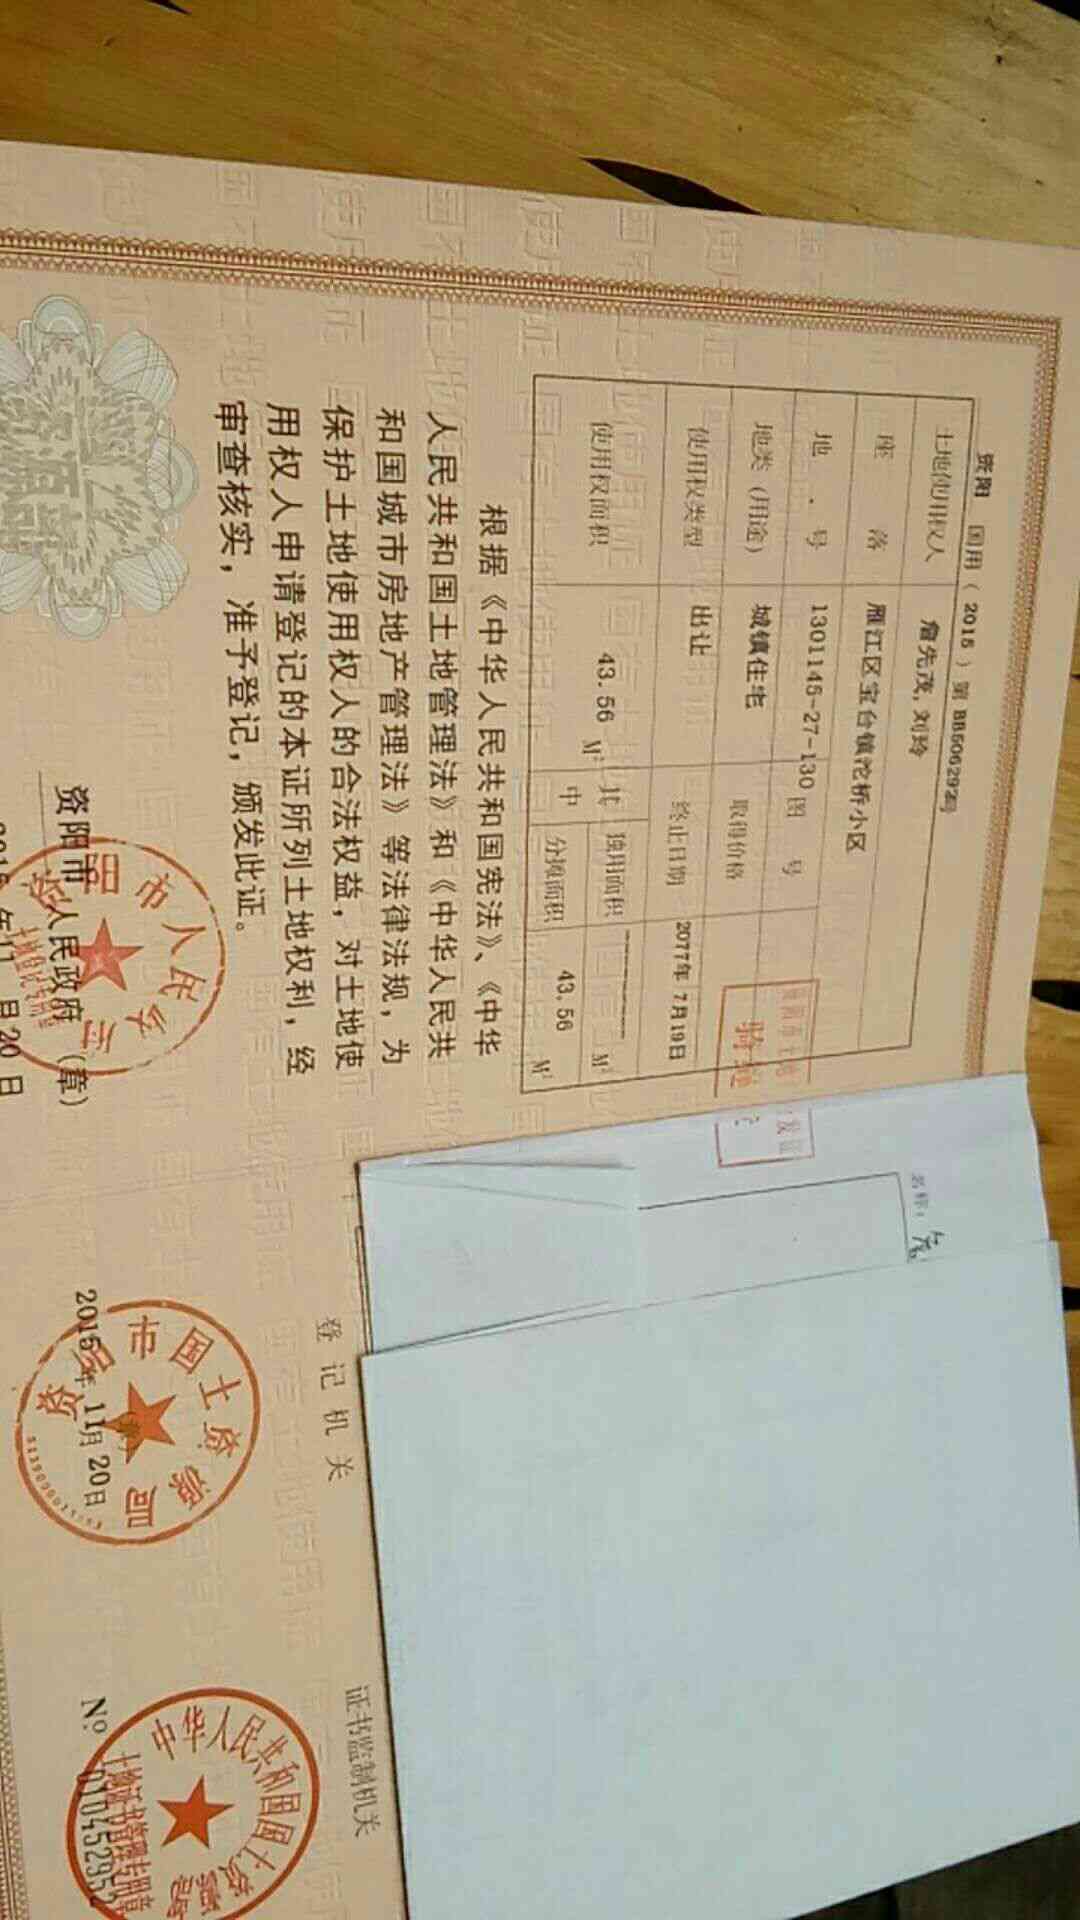 资阳 国用（2015）第BB506292号
土地使用权人 詹先茂,刘玲
座落 雁江区宝台镇沱桥小区
地号 1301145-27-130 图号
地类（用途） 城镇住宅 取得价格
使用权类型 出让 终止日期 2077年7月19日
使用权面积 43.56 M² 其中 独用面积 M²
分摊面积 43.56 M²
根据《中华人民共和国宪法》、《中华
人民共和国土地管理法》和《中华人民共
和国城市房地产管理法》等法律法规，为
保护土地使用权人的合法权益，对土地使
用权人申请登记的本证所列土地权利，经
审查核实，准予登记，颁发此证。
资阳市 人民政府（章）
2015年11月20日
名称：
登记机关
资阳市国土资源局
（章）
2015年11月20日
证书监制机关
中华人民共和国国土资源部
土地证书管理专用章
№ 010452952